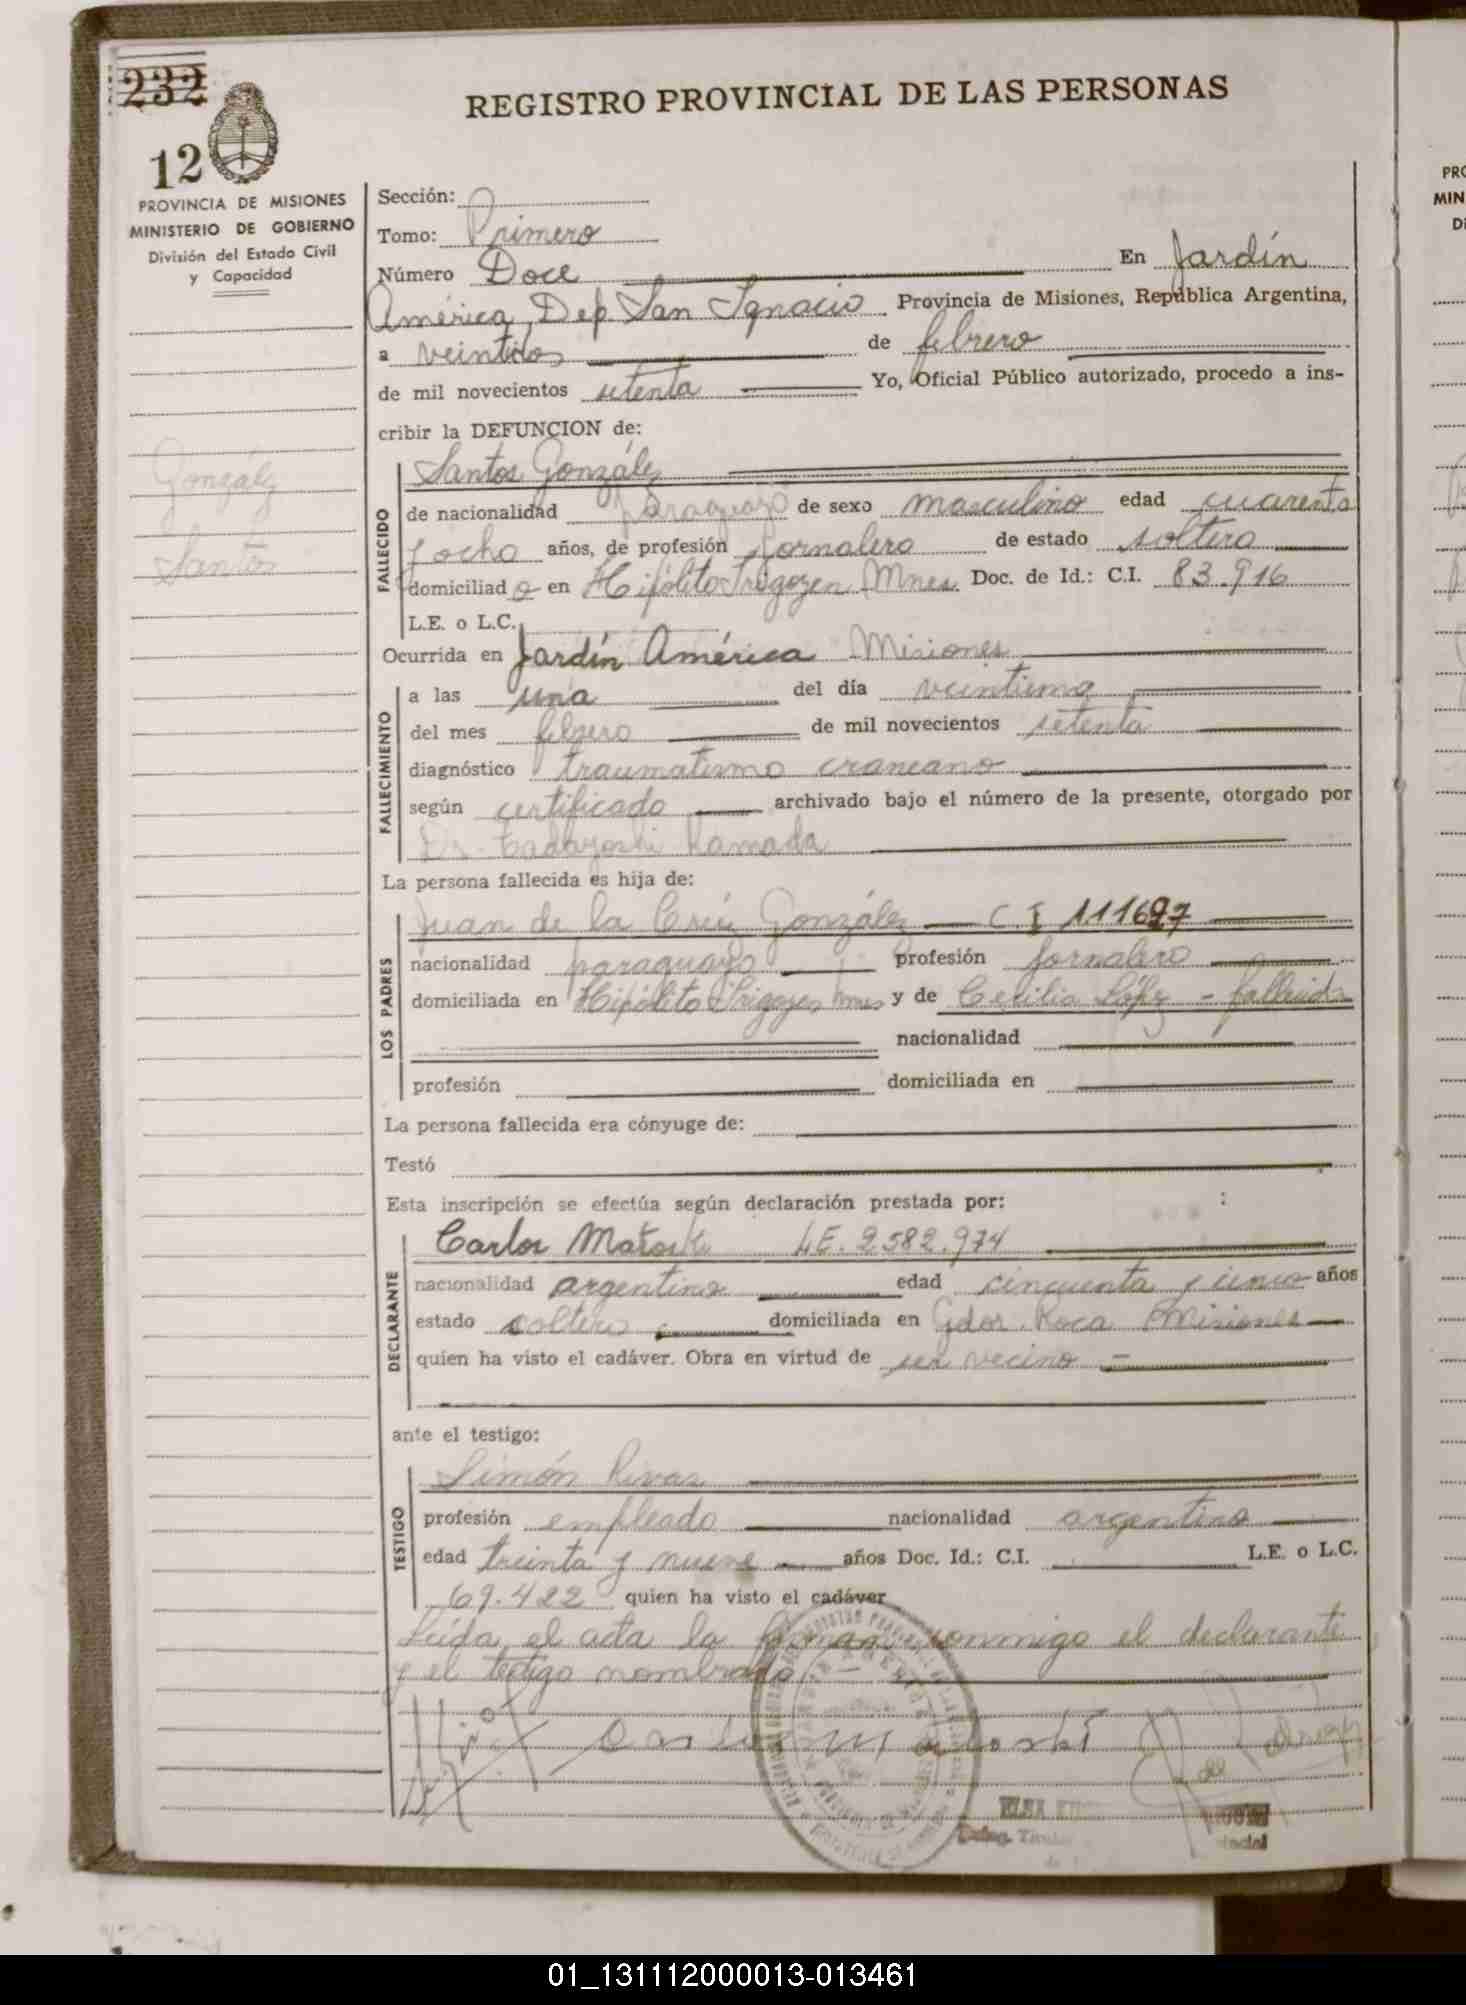 232
12
REGISTRO PROVINCIAL DE LAS PERSONAS
PROVINCIA DE MISIONES
MINISTERIO DE GOBIERNO
División del Estado Civil
y Capacidad
Gonzálz
Santos
Sección:
Tomo: Primero
Número Doce En Jardín
América, Dep. San Ignacio Provincia de Misiones, República Argentina,
a veintidos de febrero
de mil novecientos setenta Yo, Oficial Público autorizado, procedo a ins-
cribir la DEFUNCION de:
FALLECIDO
Santos Gonzálz
de nacionalidad paraguayo de sexo masculino edad cuarenta
y ocho años, de profesión jornalero de estado soltero
domiciliado en Hipólito Irigoyen Mnes. Doc. de Id.: C.I. 83.916
L.E. o L.C.
Ocurrida en Jardín América Misiones
FALLECIMIENTO
a las una del día veintiuno
del mes febrero de mil novecientos setenta
diagnóstico traumatismo craneano
según certificado archivado bajo el número de la presente, otorgado por
Dr. Tadayoshi Kamada
La persona fallecida es hija de:
LOS PADRES
Juan de la Crúz Gonzálz C.I 111697
nacionalidad paraguayo profesión jornalero
domiciliada en Hipólito Irigoyen Mnes y de Cecilia Lópz - fallecida
nacionalidad
profesión domiciliada en
La persona fallecida era cónyuge de:
Testó
Esta inscripción se efectúa según declaración prestada por:
DECLARANTE
Carlos Matoski L.E. 2582.974
nacionalidad argentino edad cincuenta y cinco años
estado soltero domiciliada en Gdor. Roca Misiones
quien ha visto el cadáver. Obra en virtud de ser vecino
ante el testigo:
TESTIGO
Simón Rivas
profesión empleado nacionalidad argentino
edad treinta y nueve años Doc. Id.: C.I. L.E. o L.C.
69.422 quien ha visto el cadáver
Leída el acta la firman conmigo el declarante
y el testigo nombrado
ELSA
Deleg. Titular
01_131112000013-013461